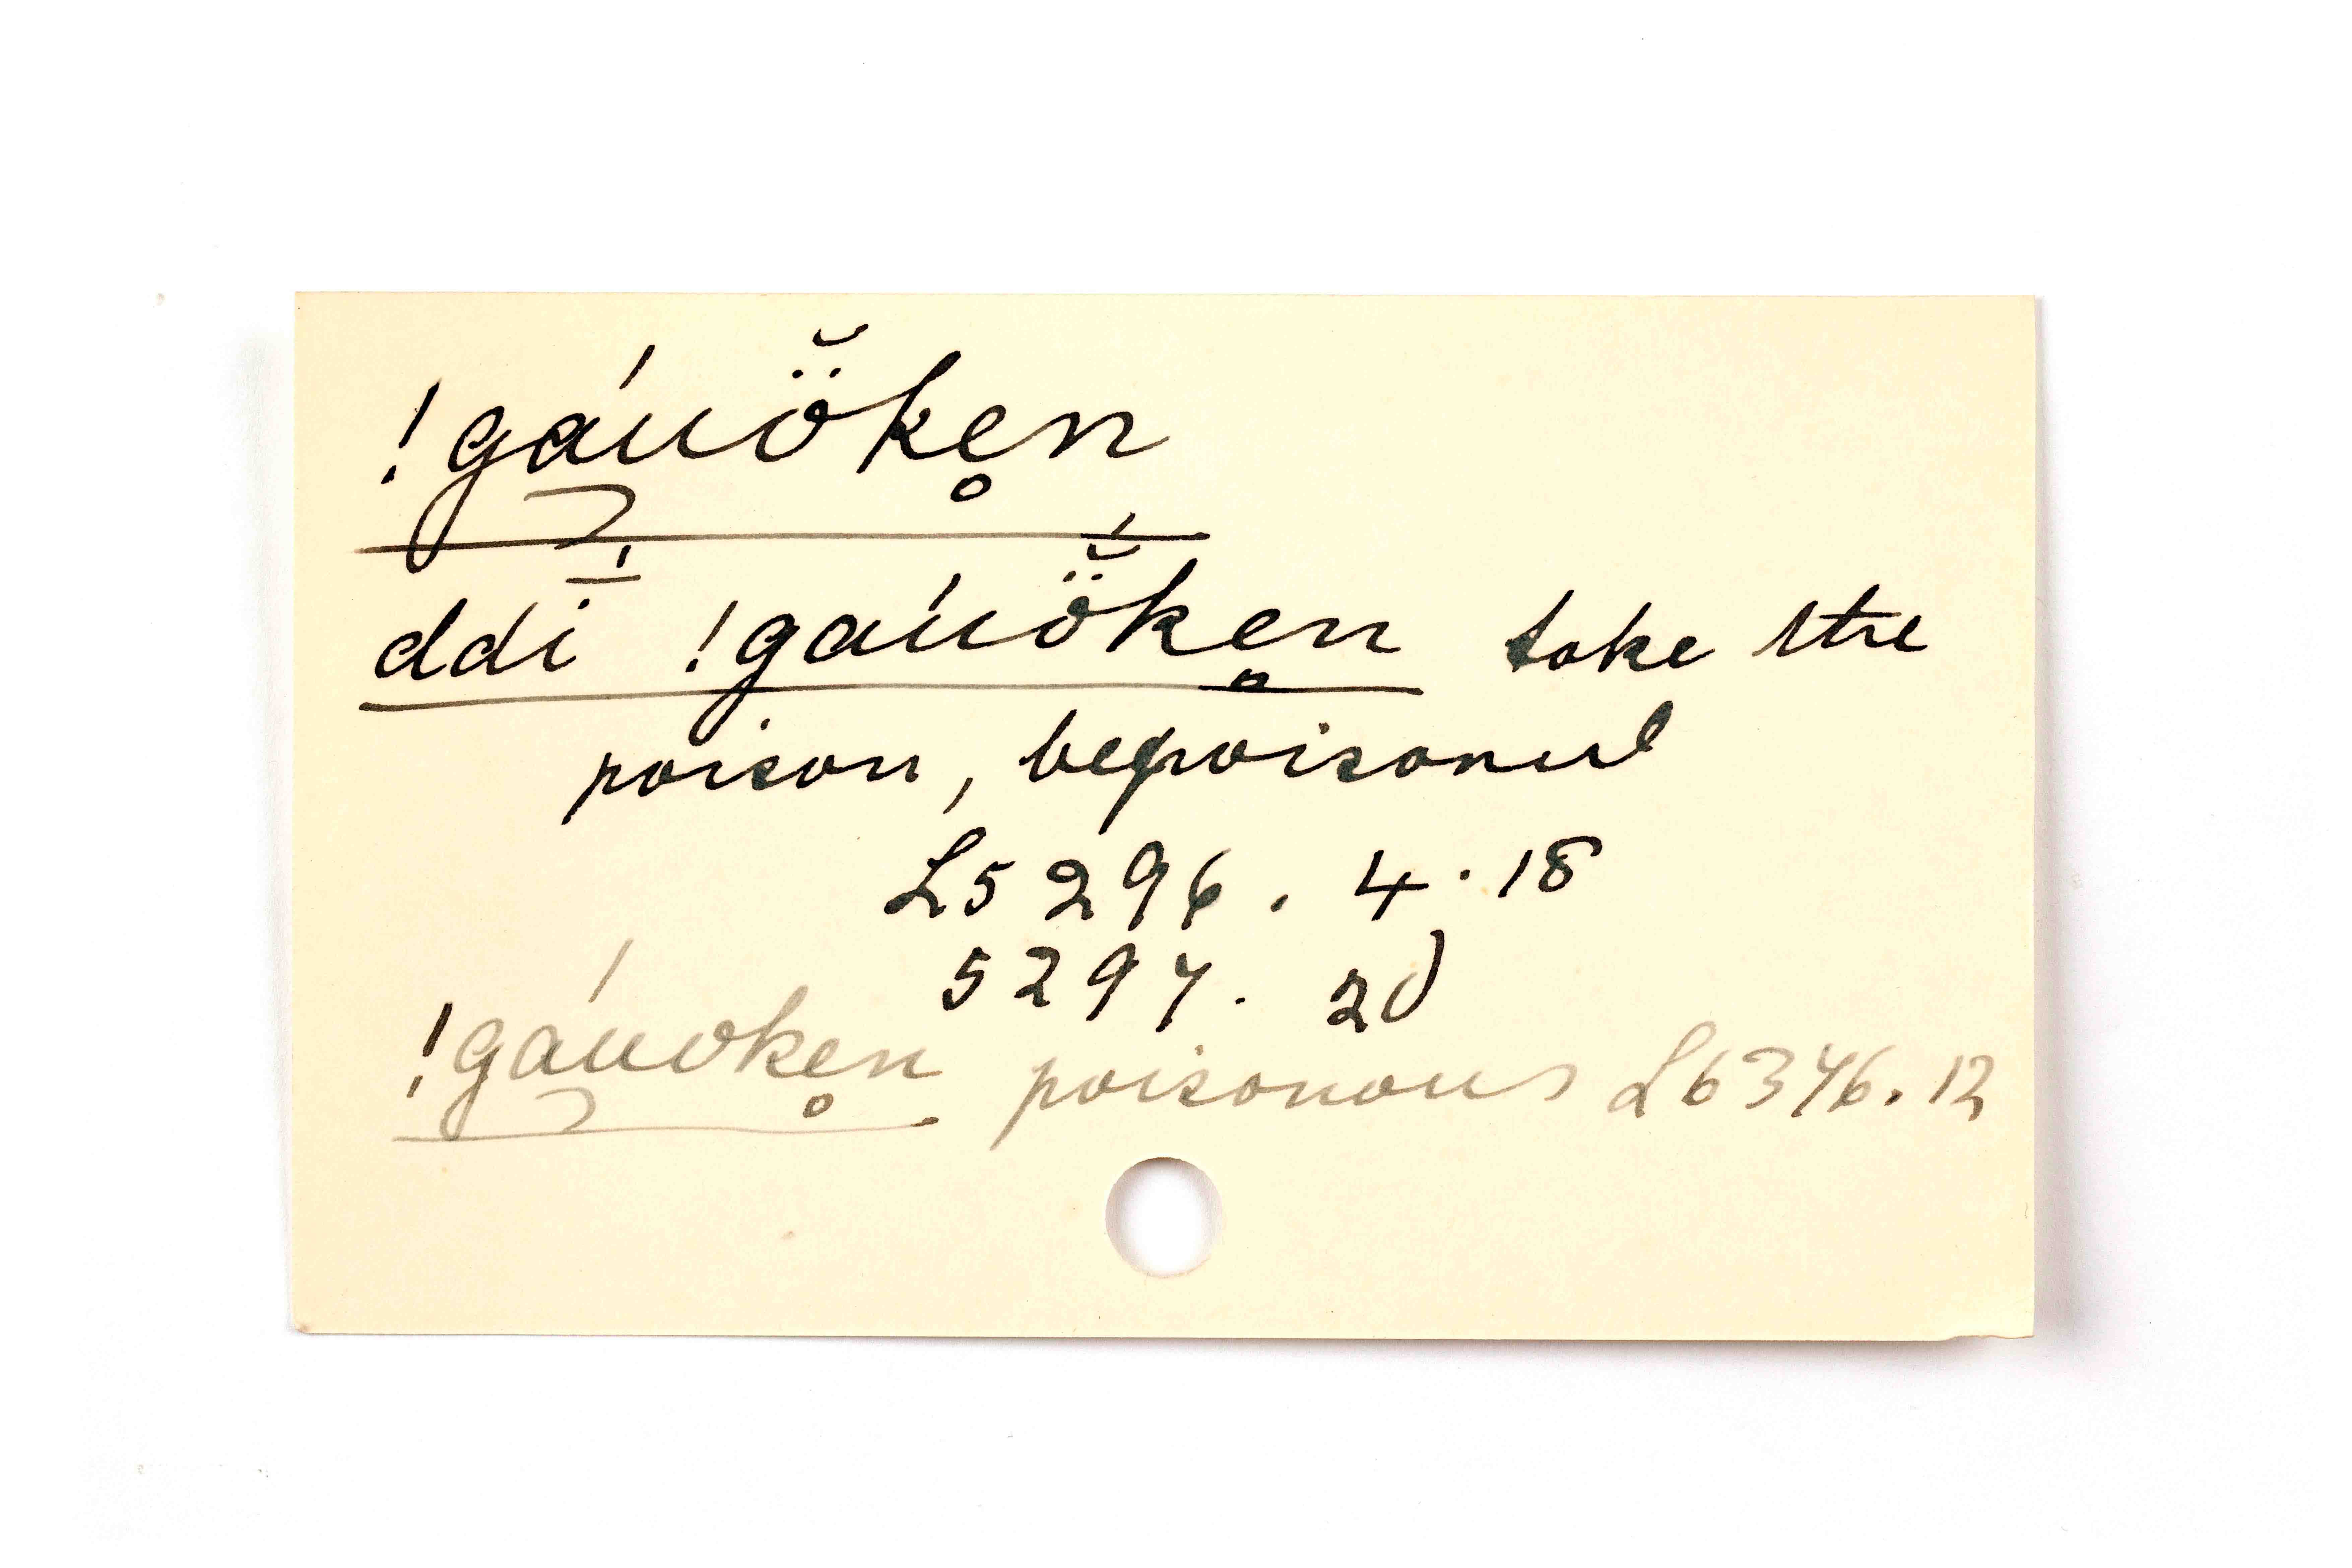 !gáuö̆ken̥
ddī́ !gáuö̆ken̥ take the
poison, be poisoned
L5296. 4. 18
5297. 20
!gáuoken̥ poisonous L6346. 12